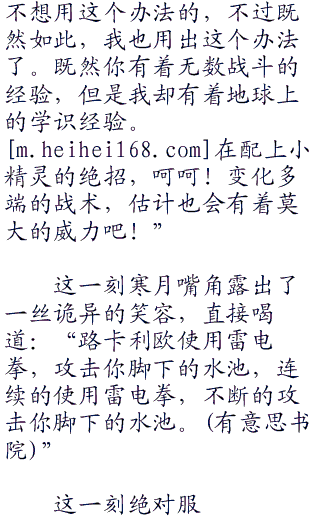 不想用这个办法的，不过既
然如此，我也用出这个办法
了。既然你有着无数战斗的
经验，但是我却有着地球上
的学识经验。
[m.heihei168.com]在配上小
精灵的绝招，呵呵！变化多
端的战术，估计也会有着莫
大的威力吧！”
这一刻寒月嘴角露出了
一丝诡异的笑容，直接喝
道：“路卡利欧使用雷电
拳，攻击你脚下的水池，连
续的使用雷电拳，不断的攻
击你脚下的水池。(有意思书
院)”
这一刻绝对服